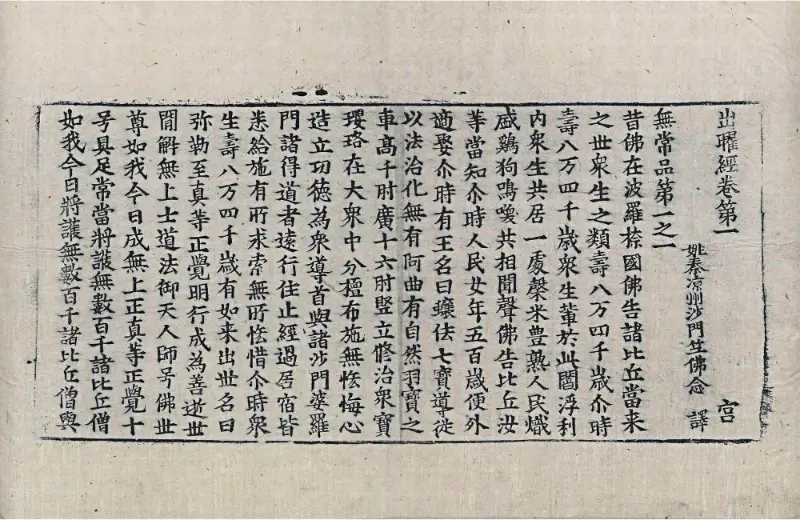 出曜經卷第一
姚秦涼州沙門竺佛念 譯
宫
無常品第一之一
昔佛在波羅㮈國佛告諸比丘當来
之世衆生之類壽八万四千歲尒時
壽八万四千歲衆生軰於此閻浮利
内衆生共居一處穀米豊熟人民熾
盛鷄狗鳴喚共相聞聲佛告比丘汝
等當知尒時人民女年五百歲便外
適娶尒時有王名曰蠰佉七寶導從
以法治化無有阿曲有自然羽寶之
車髙千肘廣十六肘竪立脩治衆寶
瓔珞在大衆中分檀布施無悋悔心
造立功德為衆導首與諸沙門婆羅
門諸得道者遠行住止經過居宿皆
悉給施有所求索無所悋惜尒時衆
生壽八万四千歲有如来出世名曰
弥勒至真等正覺明行成為善逝世
間解無上士道法御天人師号佛世
尊如我今日成無上正真等正覺十
号具足常當將護無數百千諸比丘僧
如我今日將護無數百千諸比丘僧與